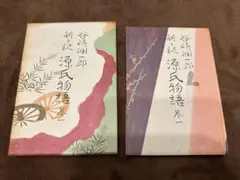 谷崎潤一郎
新々訳
源氏物語 巻一
谷崎潤一郎
新々訳
源氏物語 巻一